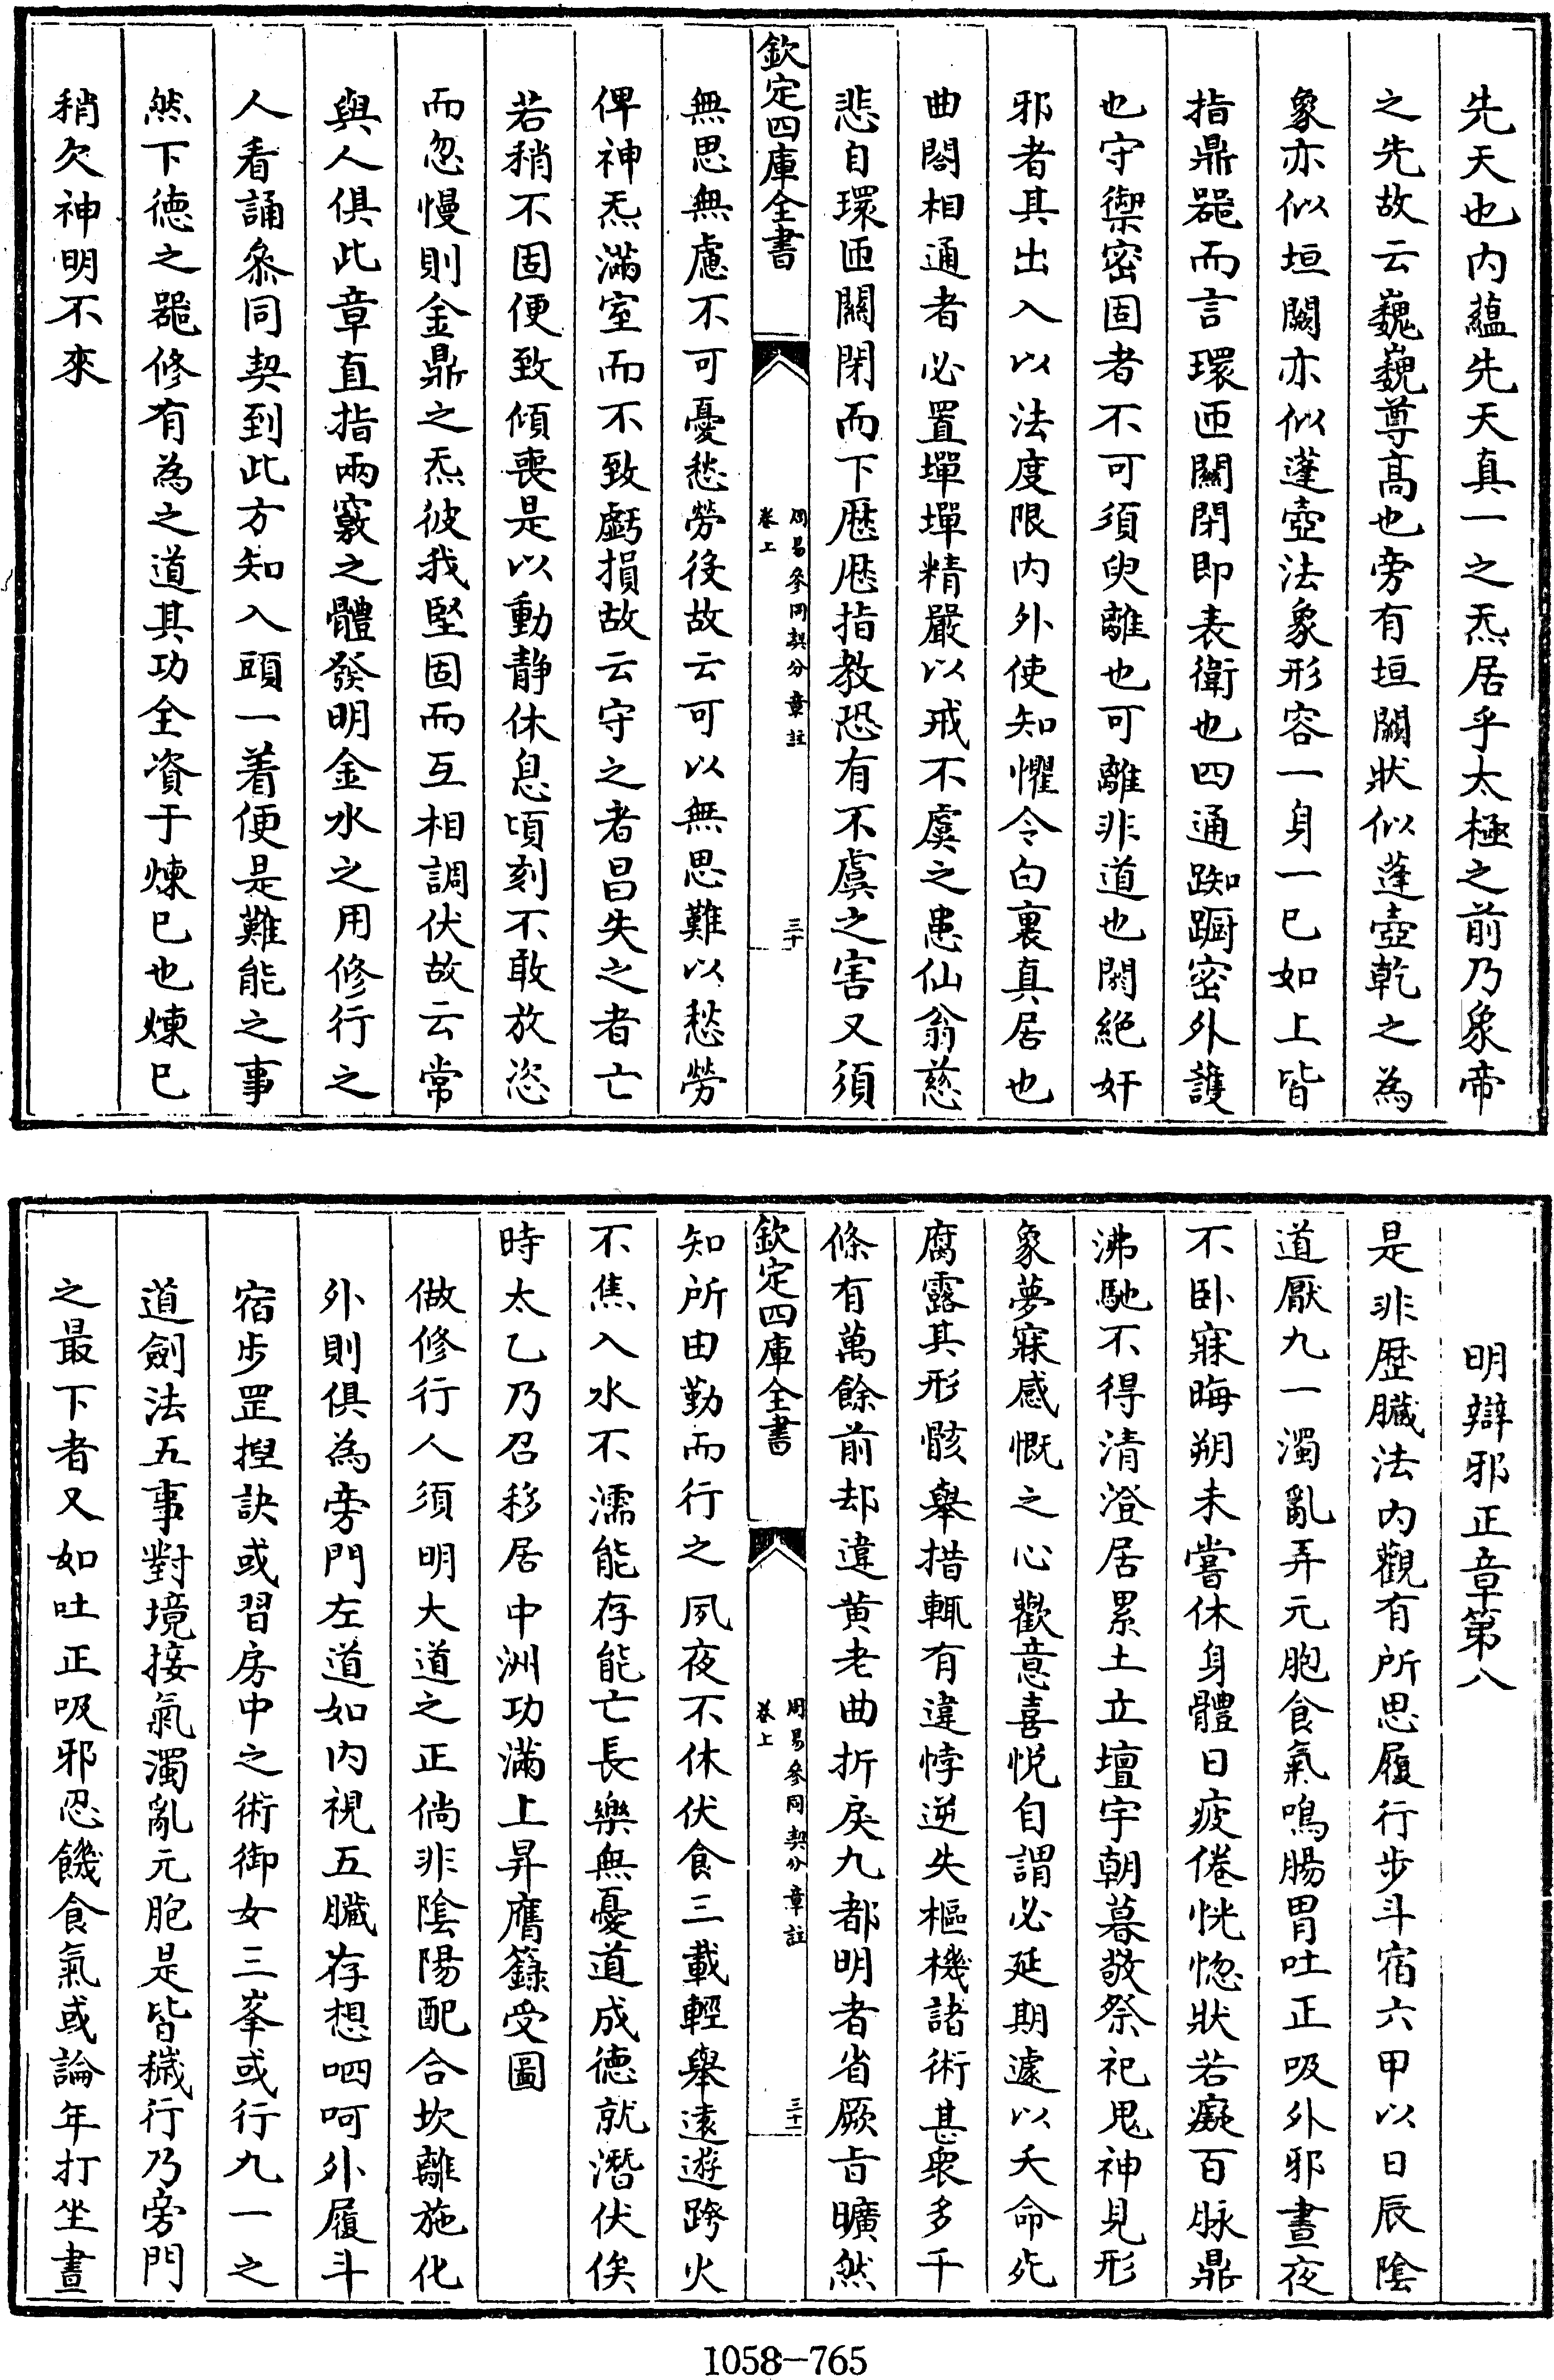 先天也内藴先天真一之炁居乎太極之前乃象帝
之先故云巍巍尊髙也旁有垣闕狀似蓬壺乾之為
象亦似垣闕亦似蓬壺法象形容一身一已如上皆
指鼎器而言環匝關閉即表衛也四通踟躕密外護
也守禦密固者不可須臾離也可離非道也閼絶奸
邪者其出入以法度限内外使知懼令白裏真居也
曲閣相通者必置墠墠精嚴以戒不虞之患仙翁慈
悲自環匝關閉而下歴歴指教恐有不虞之害又須
欽定四庫全書
周易參同契分章註
卷上
三十
無思無慮不可憂愁勞役故云可以無思難以愁勞
俾神炁滿室而不致虧損故云守之者昌失之者亡
若稍不固便致傾喪是以動静休息頃刻不敢放恣
而忽慢則金鼎之炁彼我堅固而互相調伏故云常
與人俱此章直指兩竅之體發明金水之用修行之
人看誦叅同契到此方知入頭一着便是難能之事
然下徳之器修有為之道其功全資于煉已也煉已
稍欠神明不來
明辯邪正章第八
是非歴臟法内觀有所思履行步斗宿六甲以日辰陰
道厭九一濁亂弄元胞食氣鳴腸胃吐正吸外邪晝夜
不卧寐晦朔未嘗休身體日疲倦恍惚狀若癡百脉鼎
沸馳不得清澄居累土立壇宇朝暮敬祭祀鬼神見形
象夢寐感慨之心歡意喜悦自謂必延期遽以夭命死
腐露其形骸舉措輒有違悖逆失樞機諸術甚衆多千
條有萬餘前却違黄老曲折戾九都明者省厥旨曠然
欽定四庫全書
周易參同契分章註
卷上
三十一
知所由勤而行之夙夜不休伏食三載輕舉遠遊跨火
不焦入水不濡能存能亡長樂無憂道成徳就潛伏俟
時太乙乃召移居中洲功滿上昇膺籙受圖
做修行人須明大道之正倘非陰陽配合坎離施化
外則俱為旁門左道如内視五臟存想呬呵外履斗
宿步罡揑訣或習房中之術御女三峯或行九一之
道劍法五事對境接氣濁亂元胞是皆穢行乃旁門
之最下者又如吐正吸邪忍饑食氣或論年打坐晝
1058-765